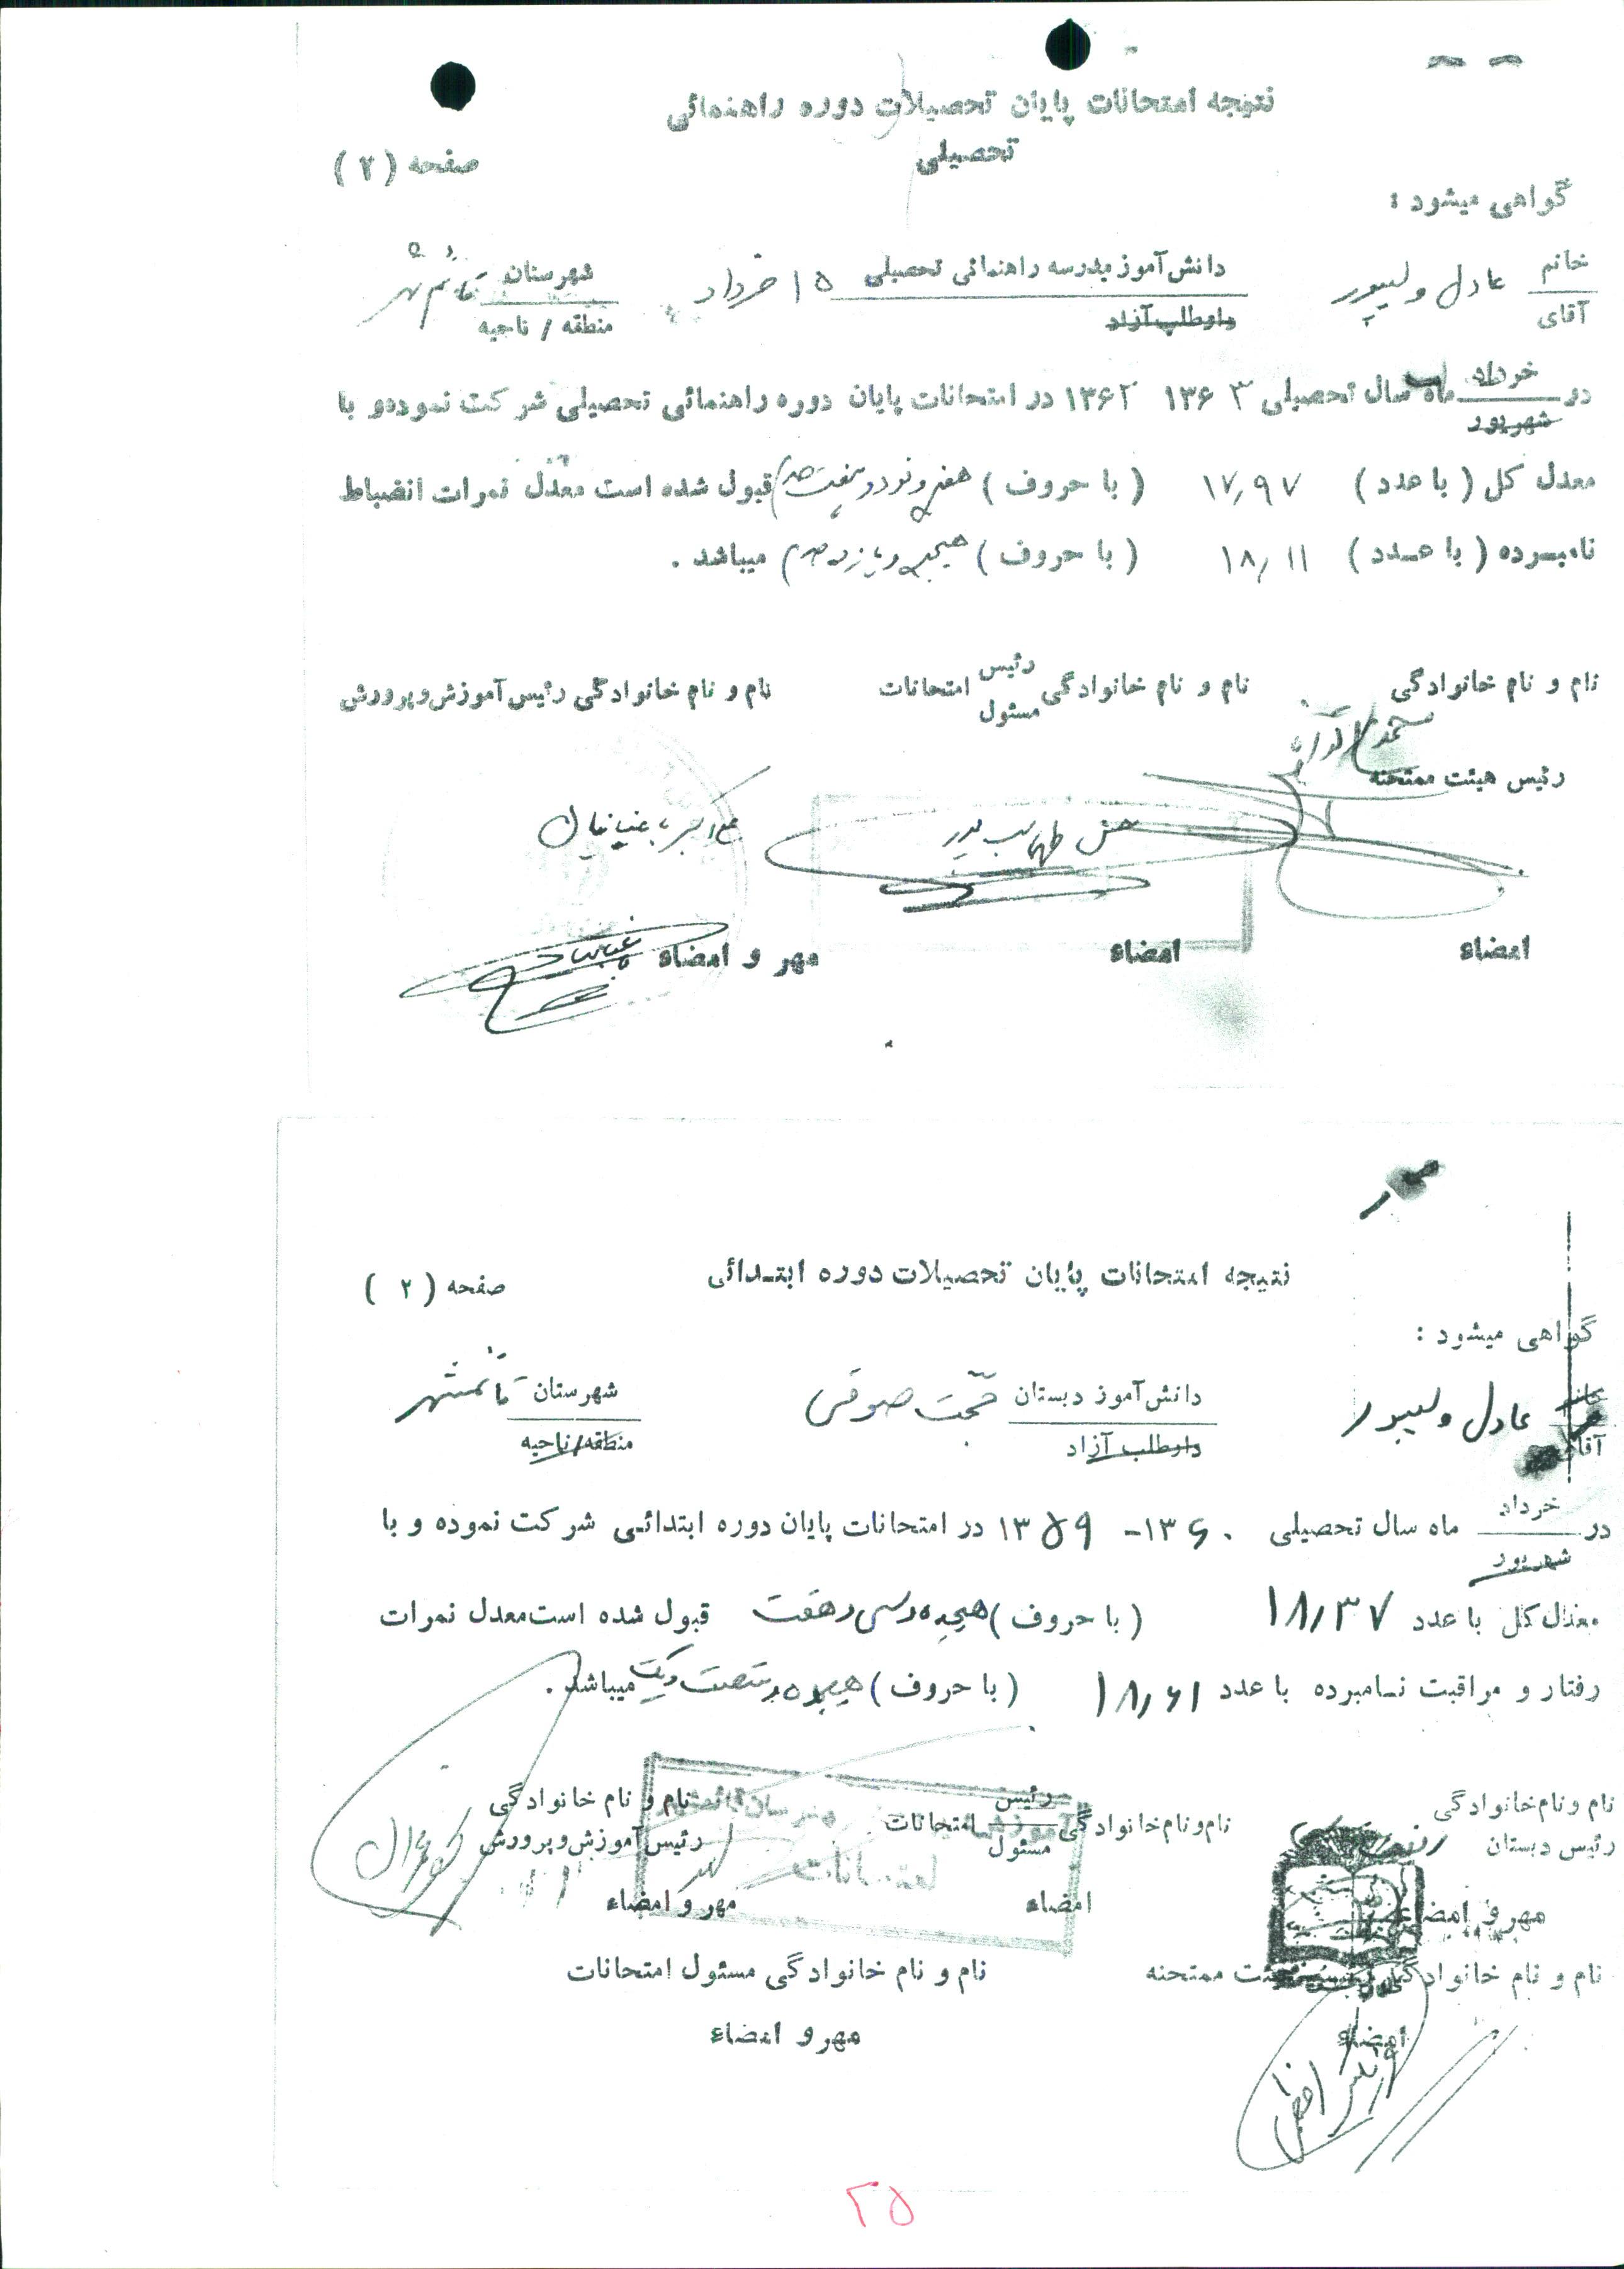 نتیجه امتحانات پایان تحصیلات دوره راهنمائی
تحصیلی
صفحه ( ۲ )
گواهی میشود :
خانم
آقای
عادل ولیپور
دانش‌آموز مدرسه راهنمائی تحصیلی
داوطلب آزاد
۱۵ خرداد
شهرستان
منطقه / ناحیه
قائم شهر
در خرداد
شهریور
ماه سال تحصیلی ۱۳۶۳ ۱۳۶۲ در امتحانات پایان دوره راهنمائی تحصیلی شرکت نموده و با
معدل کل ( با عدد ) ۱۷٫۹۷ ( با حروف ) هفده و نود و هفت صدم قبول شده است معدل نمرات انضباط
نامبرده ( با عدد ) ۱۸٫۱۱ ( با حروف ) هیجده و یازده صدم میباشد .
نام و نام خانوادگی
رئیس هیئت ممتحنه
نام و نام خانوادگی رئیس
مسئول
امتحانات
نام و نام خانوادگی رئیس آموزش و پرورش
امضاء
امضاء
مهر و امضاء
نتیجه امتحانات پایان تحصیلات دوره ابتدائی
صفحه ( ۲ )
گواهی میشود :
خانم
آقای
عادل ولیپور
دانش‌آموز دبستان
داوطلب آزاد
حجت صوفی
شهرستان
منطقه/ناحیه
قائمشهر
در خرداد
شهریور
ماه سال تحصیلی ۱۳۶۰ - ۱۳۵۹ در امتحانات پایان دوره ابتدائی شرکت نموده و با
معدل کل با عدد ۱۸٫۳۷ ( با حروف ) هیجده و سی و هفت قبول شده است معدل نمرات
رفتار و مراقبت نامبرده با عدد ۱۸٫۶۱ ( با حروف ) هیجده و شصت و یک میباشد .
نام و نام خانوادگی
رئیس دبستان
مهر و امضاء
نام و نام خانوادگی رئیس
مسئول
امتحانات
امضاء
نام و نام خانوادگی
رئیس آموزش و پرورش
مهر و امضاء
نام و نام خانوادگی رئیس هیئت ممتحنه
امضاء
نام و نام خانوادگی مسئول امتحانات
مهر و امضاء
۲۵